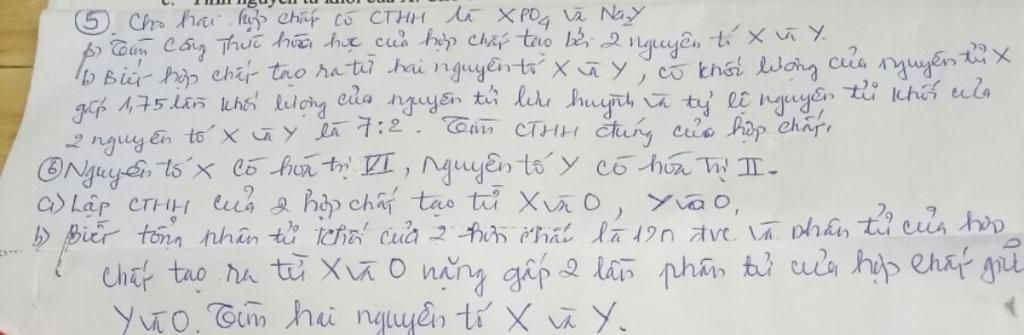 ⑤. Cho hai hợp chất có CTHH là XPO₄ và Na₂Y
a) Tìm công thức hóa học của hợp chất tạo bởi 2 nguyên tố X và Y.
b) Biết hợp chất tạo ra từ hai nguyên tố X và Y, có khối lượng của nguyên tử X
gấp 1,75 lần khối lượng của nguyên tử lưu huỳnh và tỷ lệ nguyên tử khối của
2 nguyên tố X và Y là 7:2. Tìm CTHH đúng của hợp chất.
⑥ Nguyên tố X có hóa trị VI, nguyên tố Y có hóa trị II.
a) Lập CTHH của 2 hợp chất tạo từ X và O, Y và O.
b) Biết tổng phân tử khối của 2 hợp chất là 120 đvc và phân tử của hợp
chất tạo ra từ X và O nặng gấp 2 lần phân tử của hợp chất giữa
Y và O. Tìm hai nguyên tố X và Y.